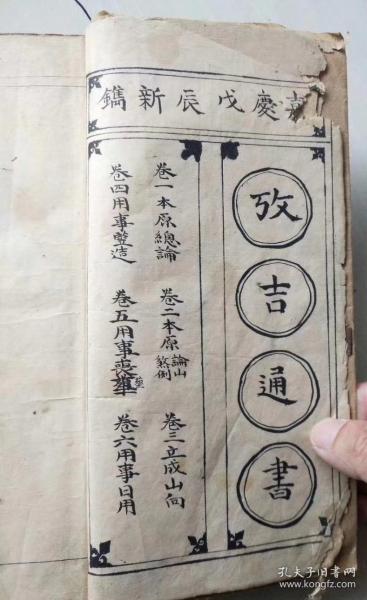 嘉慶戊辰新鐫
攷吉通書
卷一本原總論 卷二本原論山煞例 卷三立成山向
卷四用事豎造 卷五用事喪葬 卷六用事日用
孔夫子旧书网